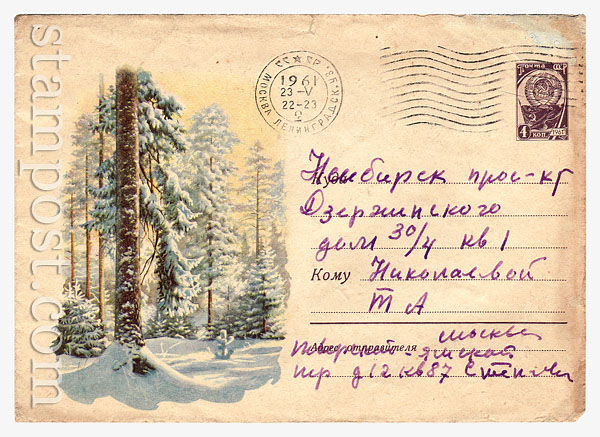 stampost.com
МОСКВА ЛЕНИНГРАДСК.УЗ.
1961
23-V
22-23
2
ПОЧТА СССР
4 КОП
Куда Новосибирск прос-кт
Дзержинского
дом 30/4 кв 1
Кому Николаевой
Т А
Адрес отправителя Москва
Тверской-Ямской
д 12 кв 87